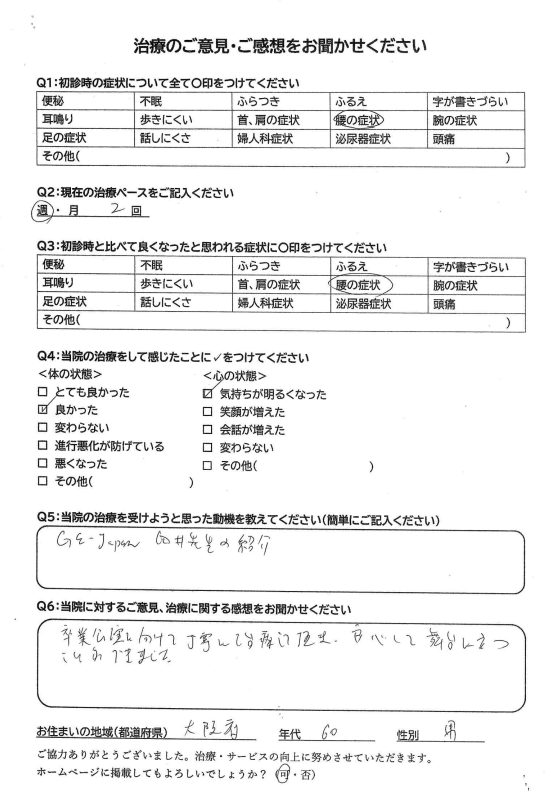 治療のご意見・ご感想をお聞かせください
Q1:初診時の症状について全て〇印をつけてください
便秘 不眠 ふらつき ふるえ 字が書きづらい
耳鳴り 歩きにくい 首、肩の症状 腰の症状 腕の症状
足の症状 話しにくさ 婦人科症状 泌尿器症状 頭痛
その他( )
Q2:現在の治療ペースをご記入ください
週・月 2 回
Q3:初診時と比べて良くなったと思われる症状に〇印をつけてください
便秘 不眠 ふらつき ふるえ 字が書きづらい
耳鳴り 歩きにくい 首、肩の症状 腰の症状 腕の症状
足の症状 話しにくさ 婦人科症状 泌尿器症状 頭痛
その他( )
Q4:当院の治療をして感じたことに✓をつけてください
<体の状態> <心の状態>
□ とても良かった ☑ 気持ちが明るくなった
☑ 良かった □ 笑顔が増えた
□ 変わらない □ 会話が増えた
□ 進行悪化が防げている □ 変わらない
□ 悪くなった □ その他( )
□ その他( )
Q5:当院の治療を受けようと思った動機を教えてください(簡単にご記入ください)
GE-Japan 井先生の紹介
Q6:当院に対するご意見、治療に関する感想をお聞かせください
卒業公演に向けて丁寧に治療して頂き、安心して舞台に立つ
ことができました
お住まいの地域(都道府県) 大阪府 年代 60 性別 男
ご協力ありがとうございました。治療・サービスの向上に努めさせていただきます。
ホームページに掲載してもよろしいでしょうか？(可・否)